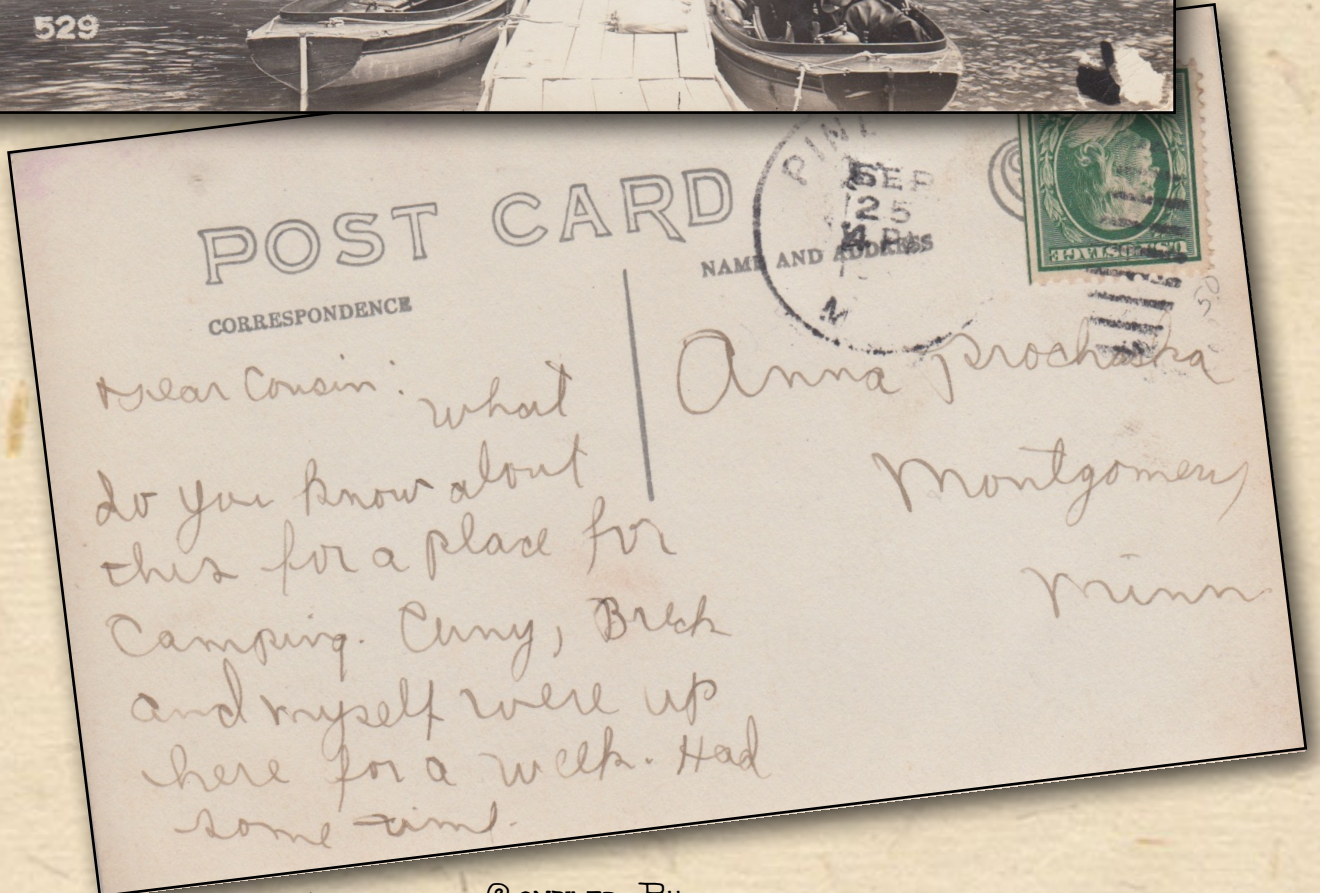 529
POST CARD
CORRESPONDENCE
NAME AND ADDRESS
PINE
SEP
25
4 PM
M
U.S. POSTAGE
50
Dear Cousin:
what
do you know about
this for a place for
Camping. Cuny, Breck
and myself were up
here for a week. Had
some time.
Anna Prochaska
Montgomery
Minn